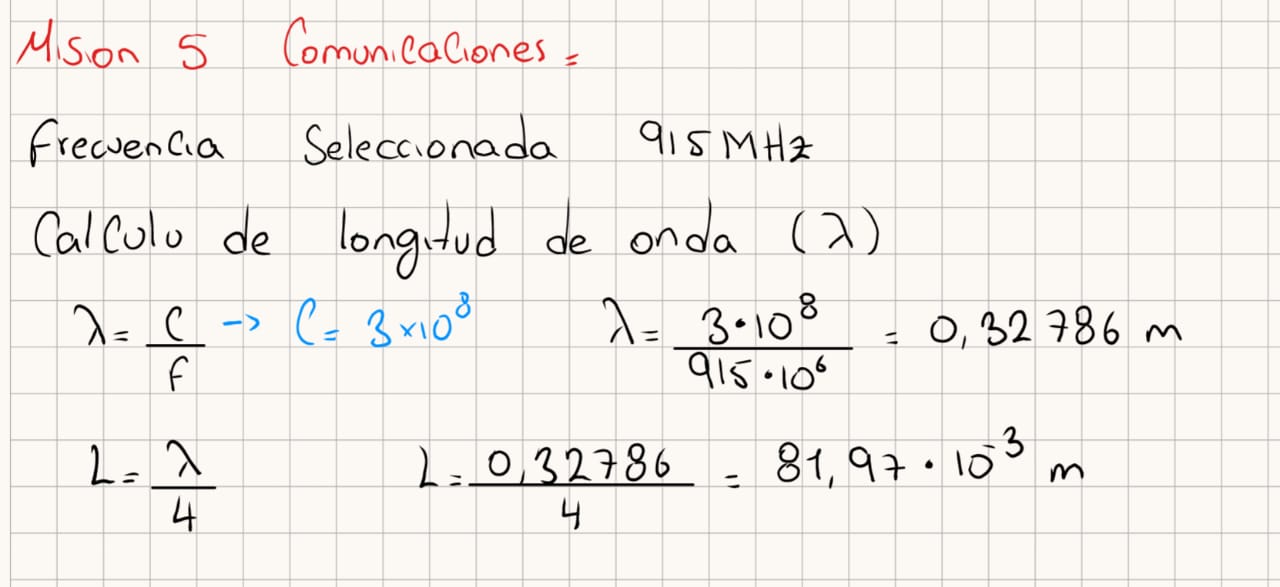 Mision 5 Comunicaciones =
Frecuencia Seleccionada 915 MHz
Calculo de longitud de onda (λ)
λ = C/f -> C = 3×10⁸ λ = 3·10⁸/915·10⁶ = 0,32786 m
L = λ/4 L = 0,32786/4 = 81,97·10⁻³ m